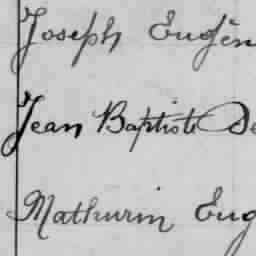 Joseph Eugèn
Jean Baptiste De
Mathurin Eug